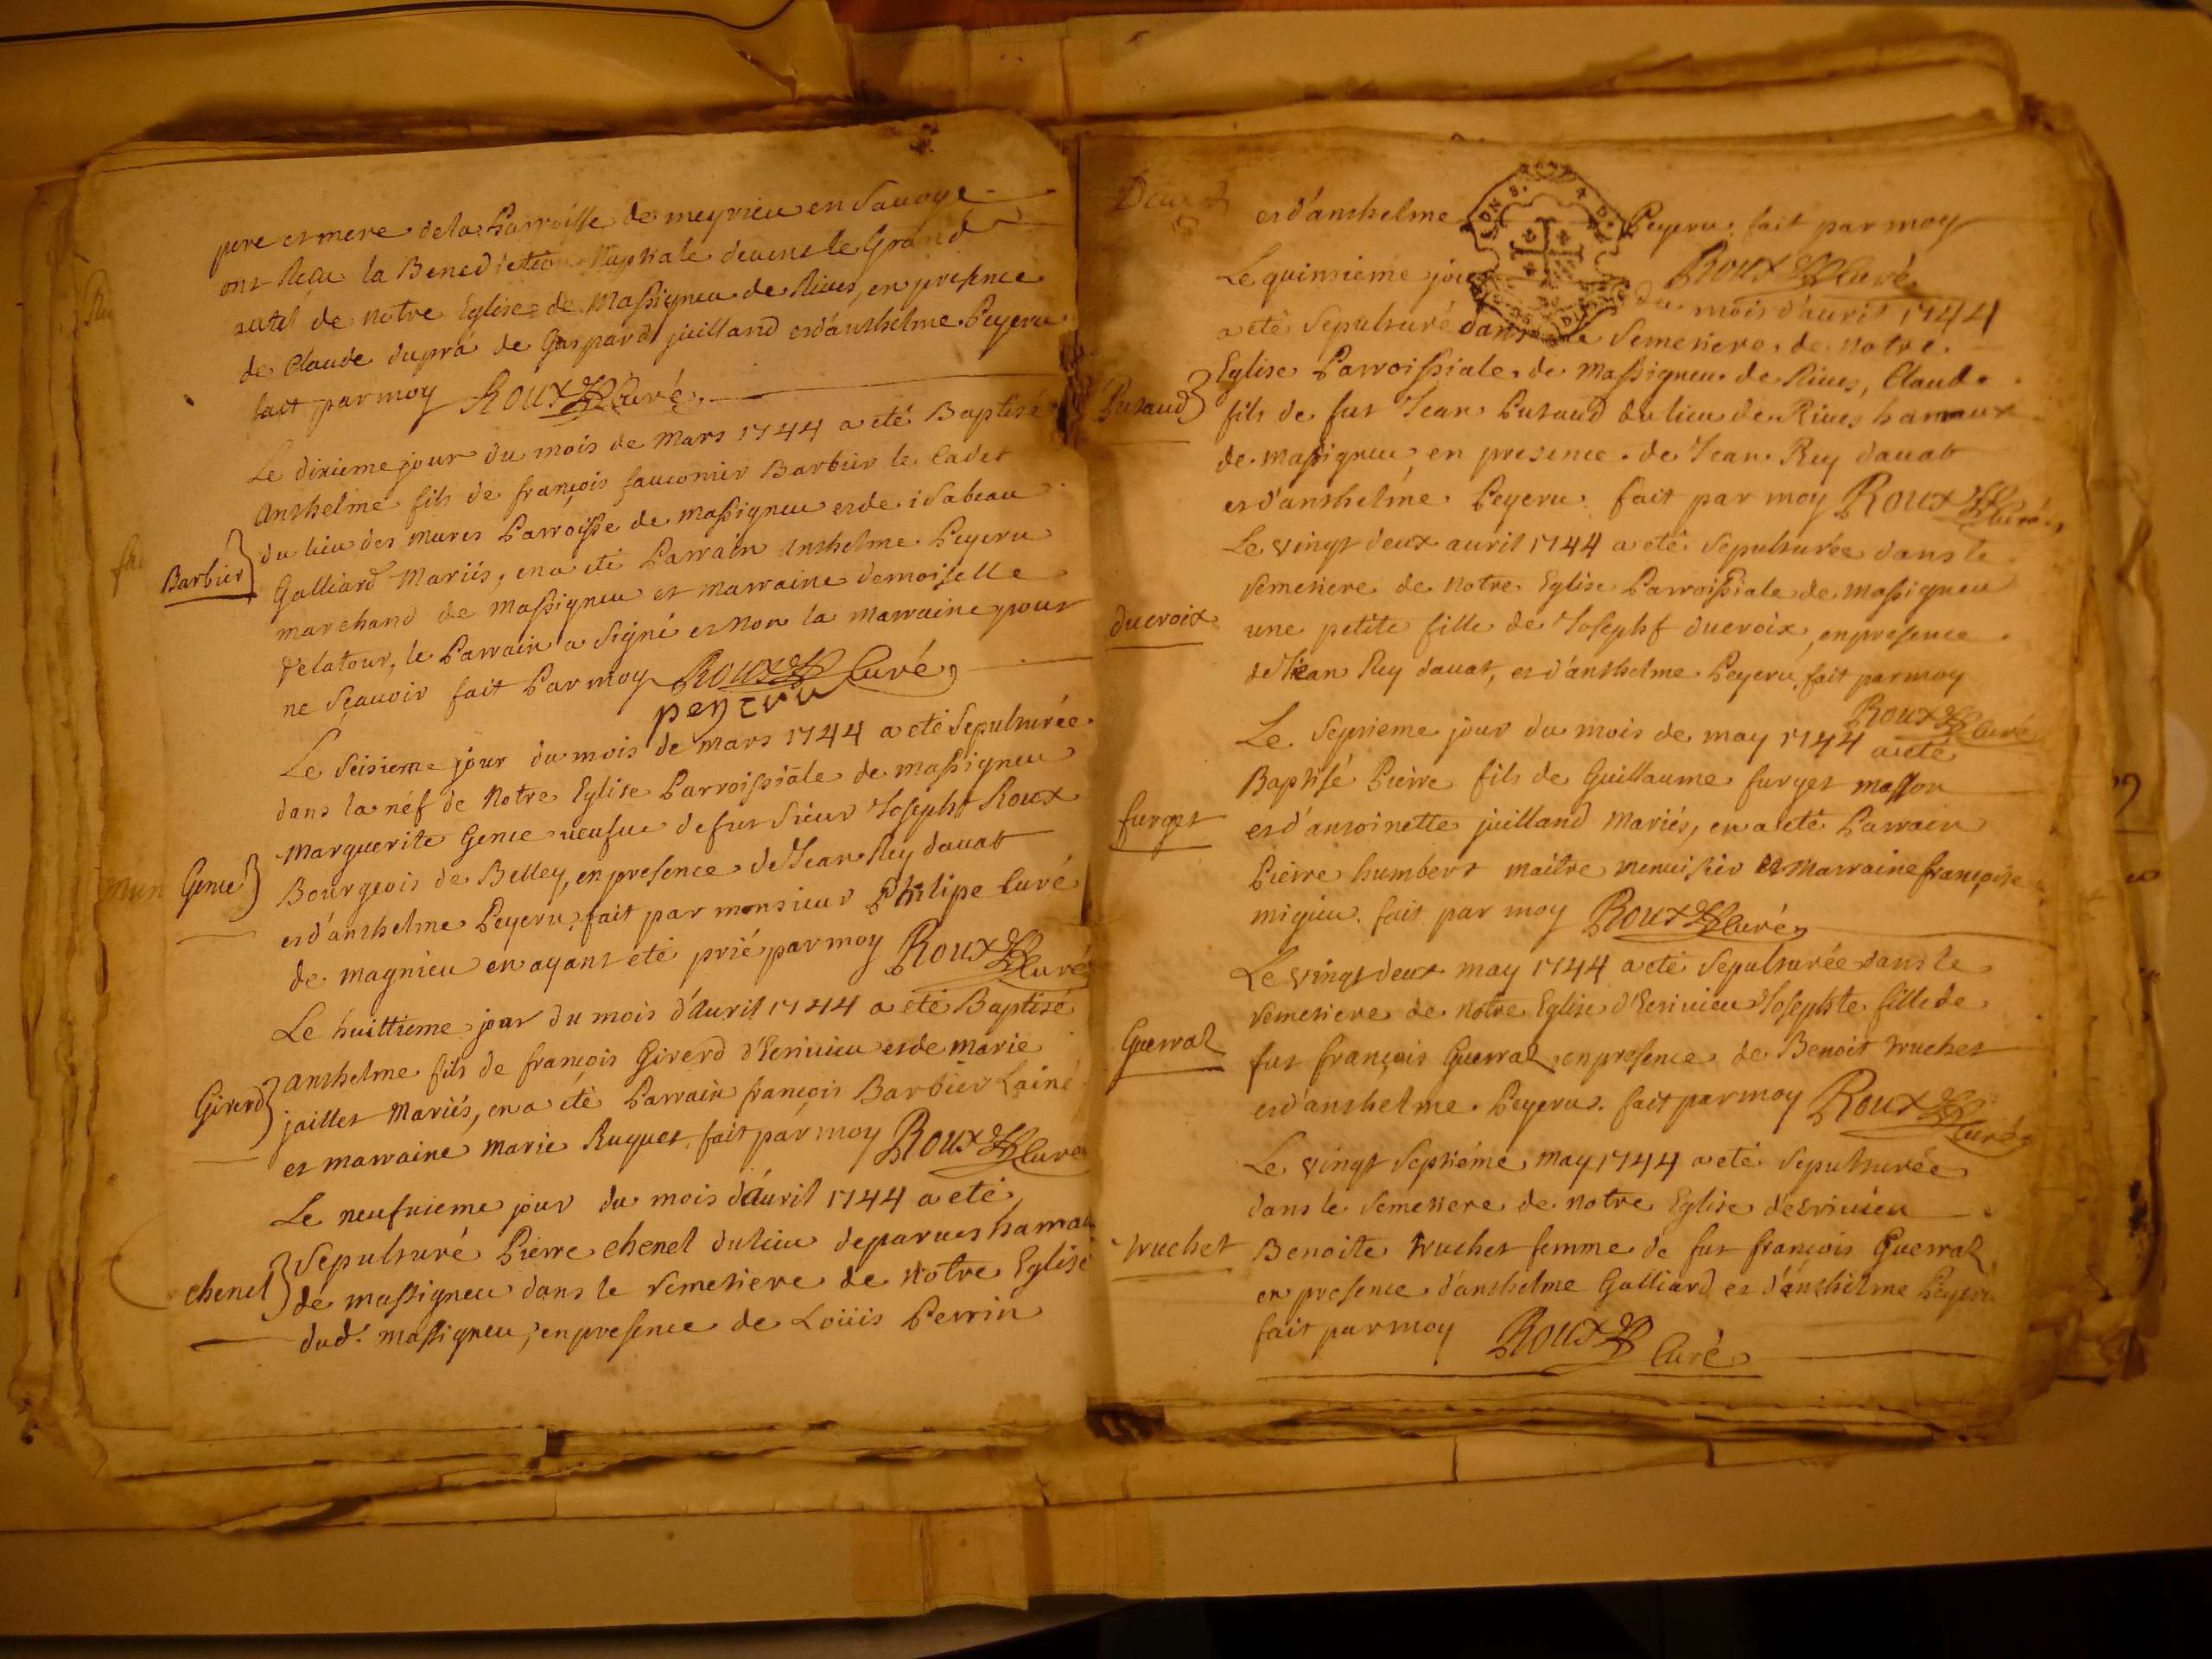 pere et mere de la Parroisse de meyrieu en Savoye
ont Reçu la Benediction Nuptiale devent le Grand
autel de notre Eglise de Massigneu de Rives, en presence
de Claude dupra de Gaspard juilland et d'anthelme Peyeru
fait par moy Roux Curé
Le dixieme jour du mois de Mars 1744 a eté Baptisé
Anthelme fils de françois fauconier Barbier le Cadet
du lieu des mures Parroisse de Massigneu et de isabeau
Barbier
Galliard Mariés, en a eté Parrain Anthelme Peyeru
marchand de Massigneu et marraine demoiselle
delatour, le Parrain a signé et Non la Marraine pour
ne sçavoir fait Par moy Roux Curé
peyeru
Le seisieme jour du mois de mars 1744 a eté sepulturée
dans la néf de Notre Eglise Parroissiale de massigneu
Marguerite Genie veufue de fut sieur Joseph Roux
Genie
Bourgeois de Belley, en presence de Jean Rey davat
et d'anthelme Peyeru, fait par monsieur Philipe Curé
de magnieu en ayant eté prié par moy Roux Curé
Le huittieme jour du mois d'Avril 1744 a eté Baptisé
Anthelme fils de françois Girerd d'Ecrivieu et de marie
Girerd
jaillet Mariés, en a eté Parrain françois Barbier Lainé
et marraine Marie Ruquet fait par moy Roux Curé
Le neufuieme jour du mois d'auril 1744 a eté
Sepulturé Pierre chenel du lieu de parves hamau
chenel
de massigneu dans le Semetiere de Notre Eglise
dud. Massigneu, en presence de Loüis Perrin
et d'anthelme Peyeru fait par moy
Roux Curé
Le quinsieme jour du mois d'avril 1744
a eté Sepulturé dans le Semetiere de Notre
Eglise Parroissiale de Massigneu de Rives, Claude
Putaud
fils de fut Jean Putaud du lieu de Rives hamaux
de massigneu, en presence de Jean Rey davat
et d'anthelme Peyeru fait par moy Roux Curé
Le Vingt deux avril 1744 a eté Sepulturée dans le
Semetiere de Notre Eglise Parroissiale de Massigneu
ducroix
une petite fille de Joseph ducroix, en presence
de Jean Rey davat, et d'anthelme Peyeru fait par moy
Roux Curé
Le Septieme jour du mois de may 1744 a eté
Baptisé Pierre fils de Guillaume furget masson
furget
et d'antoinette juilland Mariés, en a eté Parrain
Pierre humbert maitre menuisier et Marraine françoise
migieu fait par moy Roux Curé
Le Vingt deux may 1744 a eté Sepulturée dans le
Semetiere de Notre Eglise d'Ecrivieu Josephte fille de
Guerraz
fut françois Guerraz en presence de Benoit truchet
et d'anthelme Peyeru fait par moy Roux Curé
Le Vingt Septiéme may 1744 a eté Sepulturée
dans le Semetiere de Notre Eglise d'Ecrivieu
truchet
Benoite truchet femme de fut françois Guerraz
en presence d'anthelme Galliard et d'anthelme Peyeru
fait par moy Roux Curé